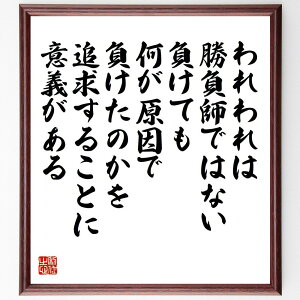 われわれは
勝負師ではない
負けても
何が原因で
負けたのかを
追求することに
意義がある